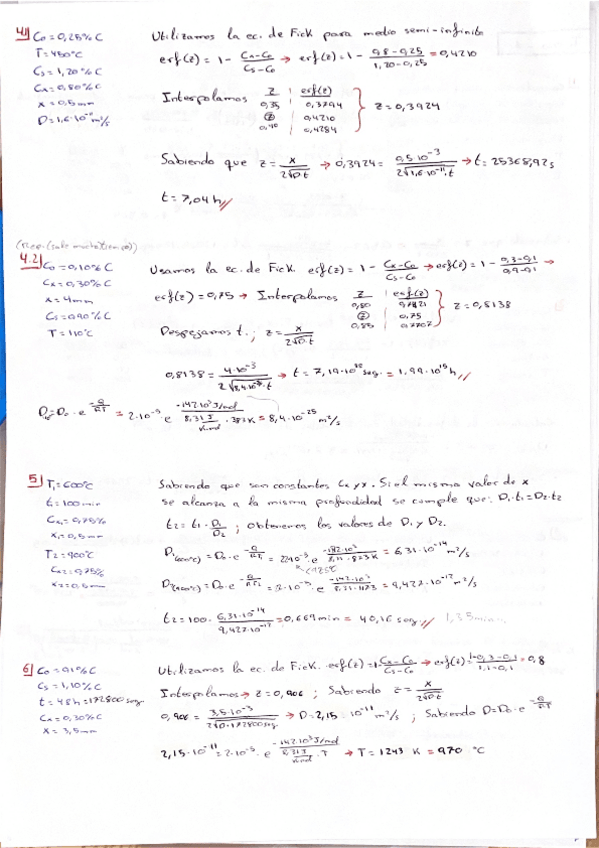 4) C₀ = 0,25% C
T = 450°C
Cs = 1,20% C
Cx = 0,80% C
x = 0,5 mm
D = 1,6·10⁻¹¹ m²/s
Utilizamos la ec. de Fick para medio semi-infinito
erf(z) = 1 - (Cx-C₀)/(Cs-C₀) → erf(z) = 1 - (0,8-0,25)/(1,20-0,25) = 0,4210
Interpolamos z | erf(z)
0,35 | 0,3794
z | 0,4210
0,40 | 0,4284
} z = 0,3924
Sabiendo que z = x/(2√D·t) → 0,3924 = 0,5·10⁻³/(2√1,6·10⁻¹¹·t) → t = 25368,92 s
t = 7,04 h //
4.2) C₀ = 0,10% C
Cx = 0,30% C
x = 4mm
Cs = 0,90% C
T = 110°C
Usamos la ec. de Fick. erf(z) = 1 - (Cx-C₀)/(Cs-C₀) → erf(z) = 1 - (0,3-0,1)/(0,9-0,1) →
erf(z) = 0,75 → Interpolamos z | erf(z)
0,80 | 0,7421
z | 0,75
0,85 | 0,7707
} z = 0,8138
Despejamos t.; z = x/(2√D·t)
0,8138 = 4·10⁻³/(2√8,4·10⁻²⁵·t) → t = 7,19·10¹⁸ seg. = 1,99·10¹⁵ h //
= D₀·e = 2·10⁻⁵ e = 8,4·10⁻²⁵ m²/s
5) T₁ = 600°C
t₁ = 100 min
Cx₁ = 0,75%
x₁ = 0,5 mm
T₂ = 900°C
Cx₂ = 0,75%
x₂ = 0,5 mm
Sabiendo que son constantes Cx y x. Si el mismo valor de x
se alcanza a la misma profundidad se cumple que: D₁·t₁ = D₂·t₂
t₂ = t₁·D₁/D₂ ; obtenemos los valores de D₁ y D₂.
= D₀·e = e = 6,31·10⁻¹⁴ m²/s
= D₀·e = 2·10⁻⁵ e = 9,427·10⁻¹² m²/s
t₂ = 100· = 0,669 min = 40,16 seg //
6) C₀ = 0,1% C
Cs = 1,10% C
t = 48h = 172800 seg
Cx = 0,30% C
x = 3,5mm
Utilizamos la ec. de Fick. erf(z) = 1 - (Cx-C₀)/(Cs-C₀) → erf(z) = 1 - (0,3-0,1)/(1,1-0,1) = 0,8
Interpolamos → z = 0,906 ; Sabiendo z = x/(2√D·t)
0,906 = 3,5·10⁻³/(2√D·172800 seg) → D = 2,15·10⁻¹¹ m²/s ; Sabiendo D = D₀·e^(-Q/RT)
2,15·10⁻¹¹ = 2·10⁻⁵·e → T = 1243 K = 970 °C